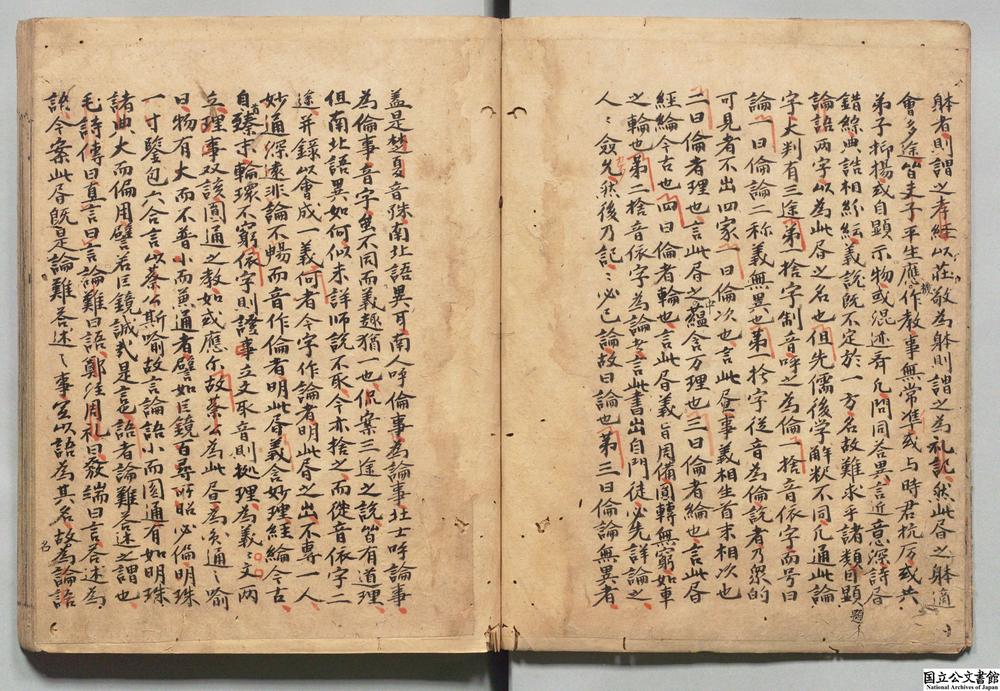 躰者則謂之孝經以莊敬為躰則謂之為礼記然此昏之躰適
會多途皆夫子平生應機作教事無常准或与時君抗厉或共
弟子抑揚或自顯示物或混迹齊凡問同荅異言近意深詩昏
錯綜典誥相紛紜義說既不定於一方名故難求乎諸類自顯題
論語兩字以為此昏之名也但先儒後学解釈不同凡通此論
字大判有三途第一捨字制音呼之為倫一捨音依字而号曰
論一曰倫論二称義無異也第一捨字從音為倫說者乃衆的
可見者不出四家一曰倫次也言此昏事義相生首末相次也
二曰倫者理也言此昏之中蘊含万理也三曰倫者綸也言此昏
經綸今古也四曰倫者輪也言此昏義旨周備圓轉無窮如車
之輪也第二捨音依字為論者言此書出自門徒必先詳論之
人々僉允然後乃記々必已論故曰論也第三曰倫論無異者
盖是楚夏音殊南北語異耳南人呼倫事為論事北士呼論事
為倫事音字雖不同而義趣猶一也侃案三途之說皆有道理
但南北語異如何似未詳師說不取今亦捨之而從音依字二
途并録以會成一義何者今字作論者明此昏之出不專一人
妙通深遠非論不暢而音作倫者明此昏義含妙理經綸今古
自首臻末輪環不窮依字則證事立文取音則拠理為義々文兩
立理事双該圓通之教如或應示故蔡公為此昏為圓通之喩
曰物有大而不普小而兼通者譬如巨鏡百尋所照必偏明珠
一寸鑒包六合言以蔡公斯喩故言論語小而圓通有如明珠
諸典大而偏用譬若巨鏡誠哉是言也語者論難荅述之謂也
毛詩傳曰直言曰言論難曰語鄭注周礼曰發端曰言荅述為
語今案此昏既是論難荅述之事宜以語為其名故名為論語
国立公文書館
National Archives of Japan